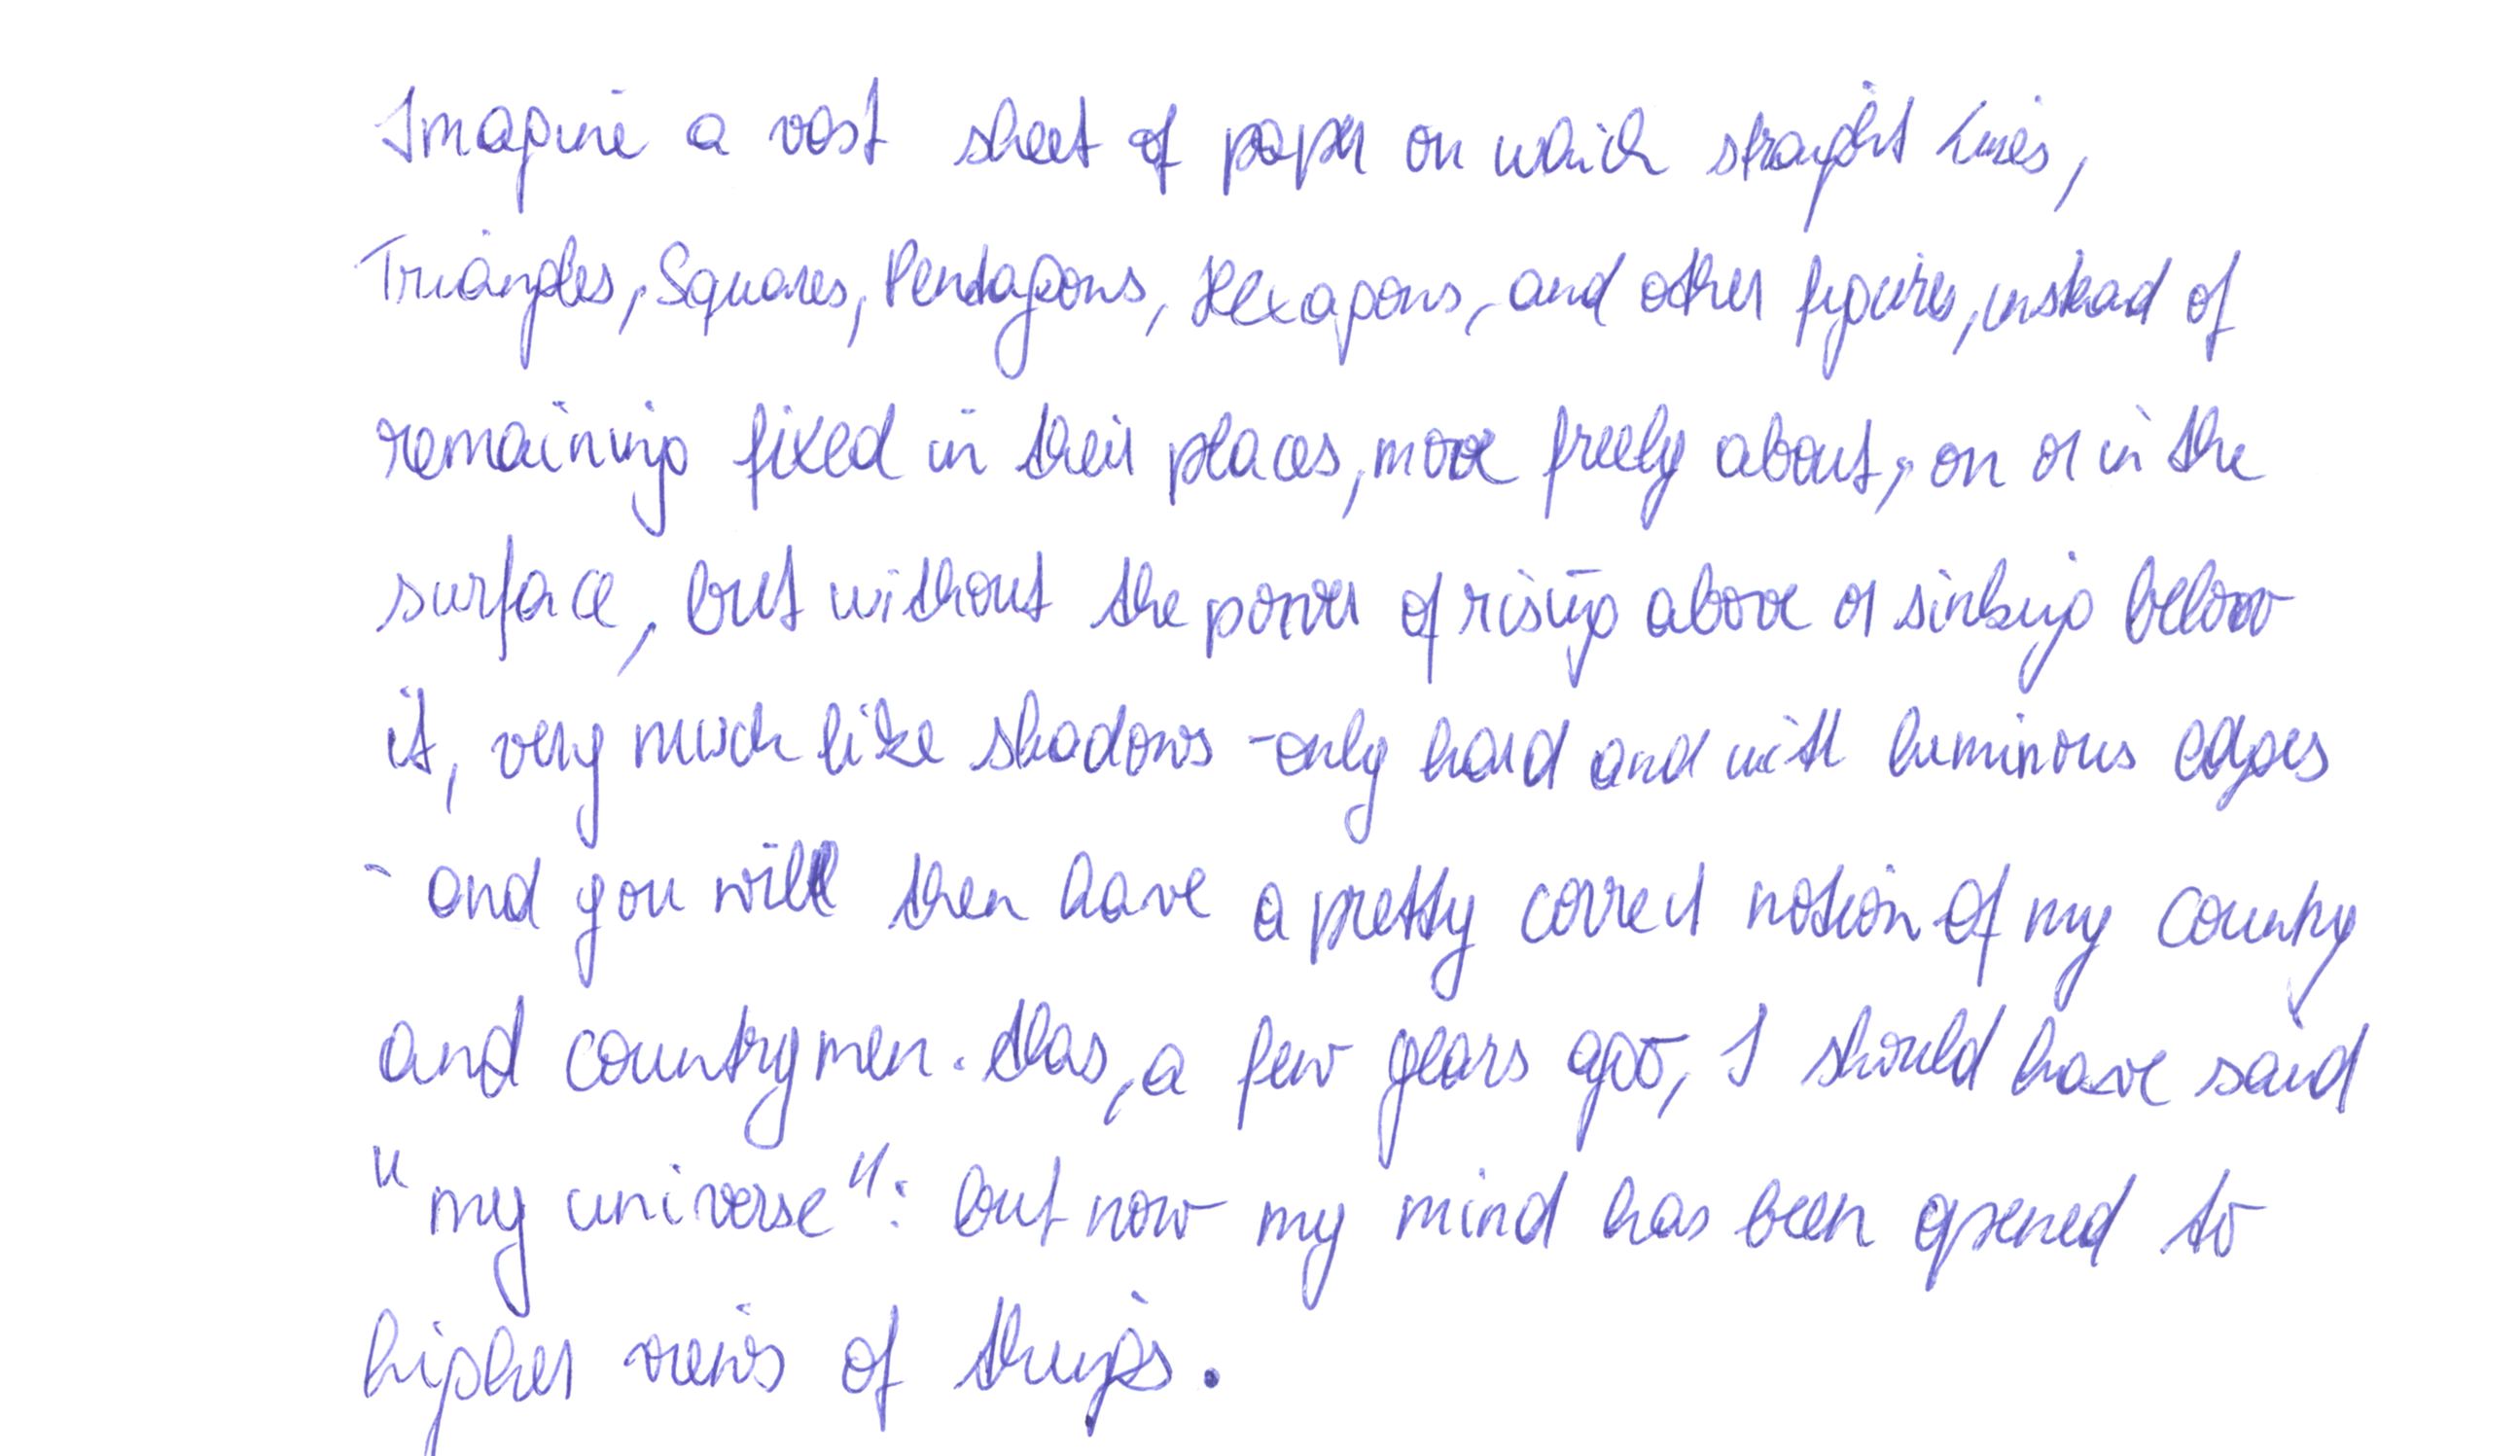 Imagine a vast sheet of paper on which straight Lines,
Triangles, Squares, Pentagons, Hexagons, and other figures, instead of
remaining fixed in their places, move freely about, on or in the
surface, but without the power of rising above or sinking below
it, very much like shadows - only hard and with luminous edges
- and you will then have a pretty correct notion of my country
and countrymen. Alas, a few years ago, I should have said
"my universe": but now my mind has been opened to
higher views of things.